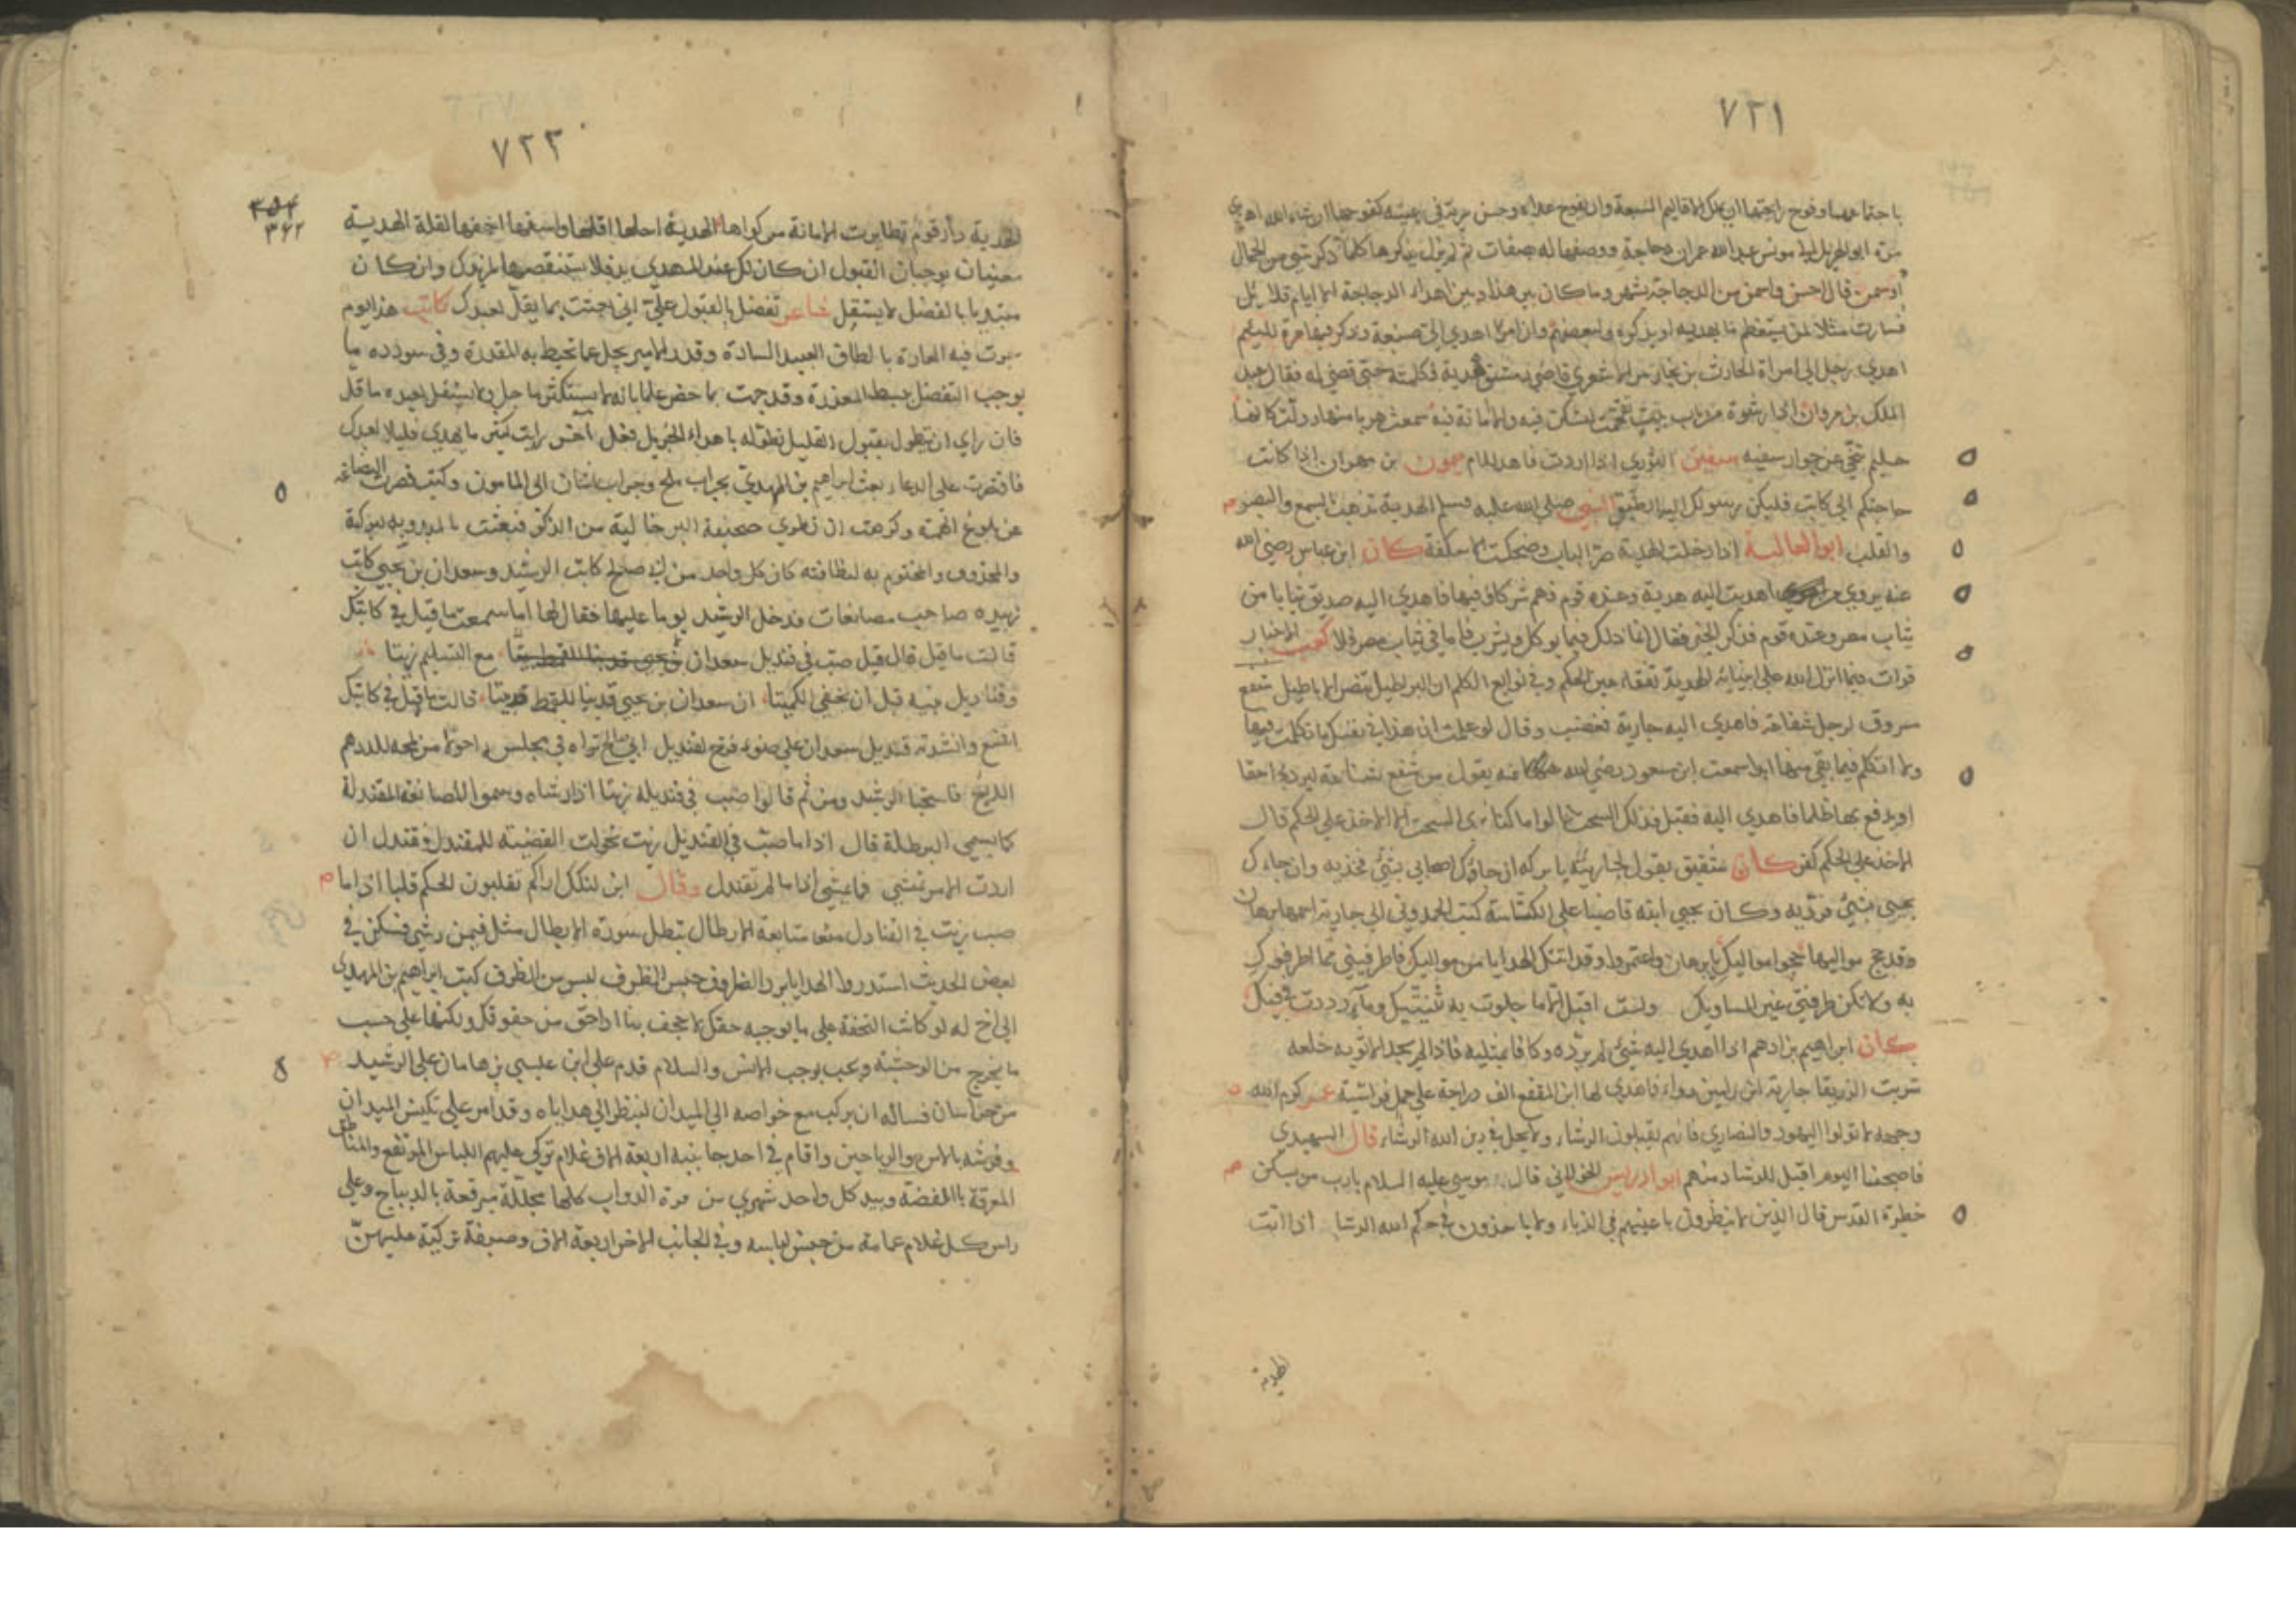 ٧٢١
باجتماعهما وفوح رائحتها ان يملك الاقاليم السبعة وان يفوح عدله وحسن سيرته في رعيته كفوحها ان شاء الله اهدى
مرة ابو الهذيل الى مويس بن عمران دجاجة ووصفها له بصفات ثم لم يزل يذكرها كلما ذكر شئ من الجمال
او سمن قال احسن واسمن من الدجاجة
فسارت مثلا لمن يستعظم ما يهديه او يذكره
اهدى رجل الى امراة الحارث قاضي دمشق هدية فكلمته حتى قضى له فقال عبد
الملك بن مروان اذا رشوة من باب بيت تقحمت لتسكن فيه والامانة فيه سعت هربا منها وولت كانها
حليم تنحى عن جوار سفيه سفين الثوري اذا اردت فاهد للام ميمون بن مهران اذا كانت
حاجتكم الى كاتب فليكن رسولك اليه الطمع النبي صلى الله عليه وسلم الهدية تذهب بالسمع والبصر
والقلب ابو العالية اذا دخلت الهدية من الباب وضحكت الاسكفة كان ابن عباس رضي الله
عنه يروي اهديت اليه هدية وعنده قوم فهم شركاؤه فيها فاهدى اليه صديق ثيابا من
ثياب مصر وعنده قوم فذكر الخبر فقال انما ذلك فيما يوكل ويشرب فاما في ثياب مصر فلا كعب الاحبار
قرات فيما انزل الله على انبيائه الهدية تفقأ عين الحكم وفي نوابغ الكلم ان البراطيل تنصر الاباطيل شفع
مسروق لرجل شفاعة فاهدى اليه جارية فغضب وقال لو علمت ان هذا في نفسك ما تكلمت فيها
ولا اتكلم فيما بقي منها ابدا سمعت ابن مسعود رضي الله عنه يقول من شفع شفاعة ليرد بها حقا
او يدفع بها ظلما فاهدي اليه فقبل فذلك السحت قالوا ما كنا نرى السحت الا الاخذ على الحكم قال
الاخذ على الحكم كفر كان شقيق يقول لجاريته يا بركه ان جاءك اصحابي بشئ فخذيه وان جاءك
يحيى بشئ فرديه وكان يحيى ابنه قاضيا على الكناسة كتب الحمدوني الى جارية اسمها برهان
وقد حج مواليها حجوا مواليك يا برهان واعتمروا وقد اتتك الهدايا من مواليك فاطرفيني مما اطرفوك
به ولا تكن طرفتي غير المساويك ولست اقبل الا ما جلوت به ثنيتيك وما رددت في فيك
كان ابراهيم بن ادهم اذا اهدي اليه شئ لم يرده وكافا بمثليه فاذا لم يجد الا ثوبه خلعه
شربت الزريقا جارية ابن رامين دواء فاهدى لها ابن المقفع الف دراجة على جمل قراسية عن كرم الله
وجهه لا تولوا اليهود والنصارى فانهم يقبلون الرشاء ولا يحل في دين الله الرشاء قال السهيدي
فاصبحنا اليوم اقبل للرشا منهم ابو ادريس الخولاني قال موسى عليه السلام يا رب من يسكن
حظيرة القدس قال الذين لا ينظرون باعينهم في الزناء ولا ياخذون في حكم الله الرشا اذا اتت
الهدية
٧٢٢
٣٦٢
الهدية دار قوم تطايرت الامانة من كواها الهدية
معنيان يوجبان القبول ان كان لك عند المهدى يد فلا تستنقصها وان كان
مبتديا بالفضل لا يستقل شاعر تفضل بالقبول علي اني بعثت بما يقل لعبدك كاتب هذا يوم
جرت فيه العادة بالطاف العبيد السادة وقدر الامير يجل عما تحيط به المقدرة وفي سودده ما
يوجب التفضل ببسط المعذرة وقد وجهت بما حضر علما بانه لا يستكثر ما جل ولا يستقل لعبده ما قل
فان راى ان يتطول بقبول القليل تطوله باهداء الجزيل فعل آخر رايت كثير ما يهدى قليلا لعبدك
فاقتصرت على الدعاء بعث ابراهيم بن المهدي بجراب ملح وجراب اشنان الى المامون وكتب قصرت البضاعة
عن بلوغ الهمة وكرهت ان تطوى صحيفة البر خالية من الذكر فبعثت بالمبدوء به لبركته
والمختوم به لنظافته كان كل واحد من ابي صالح كاتب الرشيد وسعدان بن يحيى كاتب
زبيده صاحب مصانعات فدخل الرشيد يوما عليها فقال لها اما سمعت ما قيل في كاتبك
قالت ما قيل قال قيل صب في قنديل سعدان مع التسليم زيتا
وقناديل بنيه قبل ان تخفى الكميتا ان سعدان بن يحيى قالت ما قيل في كاتبك
اشنع وانشدته قنديل سعدان على ضوئه فرخ لقنديل ابي صالح تراه في مجلسه احولا من لمحه للدرهم
اللائح فاستحيا الرشيد ومن ثم قالوا صب في قنديله زيتا اذا رشاه وسموا المصانعة القندلة
كما يسمى البرطلة قال اذا ما صب في القنديل زيت تحولت القضية للمقندل وقندل ان
اردت الامر تمشي فما يمشي اذا ما لم تقندل وقال ابن لنكك اراكم تقلبون الحكم قلبا اذا ما
صب زيت في القنادل متابعة الارطال تبطل سورة الابطال مثل فيمن رشي فسكن في
بعض الحديث استدروا الهدايا برد الظروف حبس الظرف ليس من الظرف كتب ابراهيم بن المهدي
الى اخ له لو كانت التحفة على ما يوجبه حقك لاجحف بنا اداء حق من حقوقك ولكنها على حسب
ما يخرج من الوحشة ويوجب الانس والسلام قدم على ابن عيسى بن هامان على الرشيد
من خراسان فساله ان يركب مع خواصه الى الميدان لينظر الى هداياه وقد امر على الميدان
وفرشه بالاس والرياحين واقام في احد جانبيه اربعة الاف غلام تركي عليهم اللباس المرتفع والمناطق
المعرقة بالفضة وبيد كل واحد شهري من فره الدواب كلها مجللة مبرقعة بالديباج وعلى
راس كل غلام عمامة من جنس لباسه وفي الجانب الاخر اربعة الاف وصيفة تركية عليهن